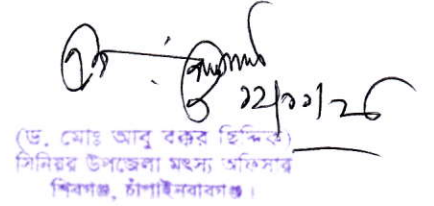 (ড. মোঃ আবু বকর ছিদ্দিক)
সিনিয়র উপজেলা মৎস্য অফিসার
শিবগঞ্জ, চাঁপাইনবাবগঞ্জ।